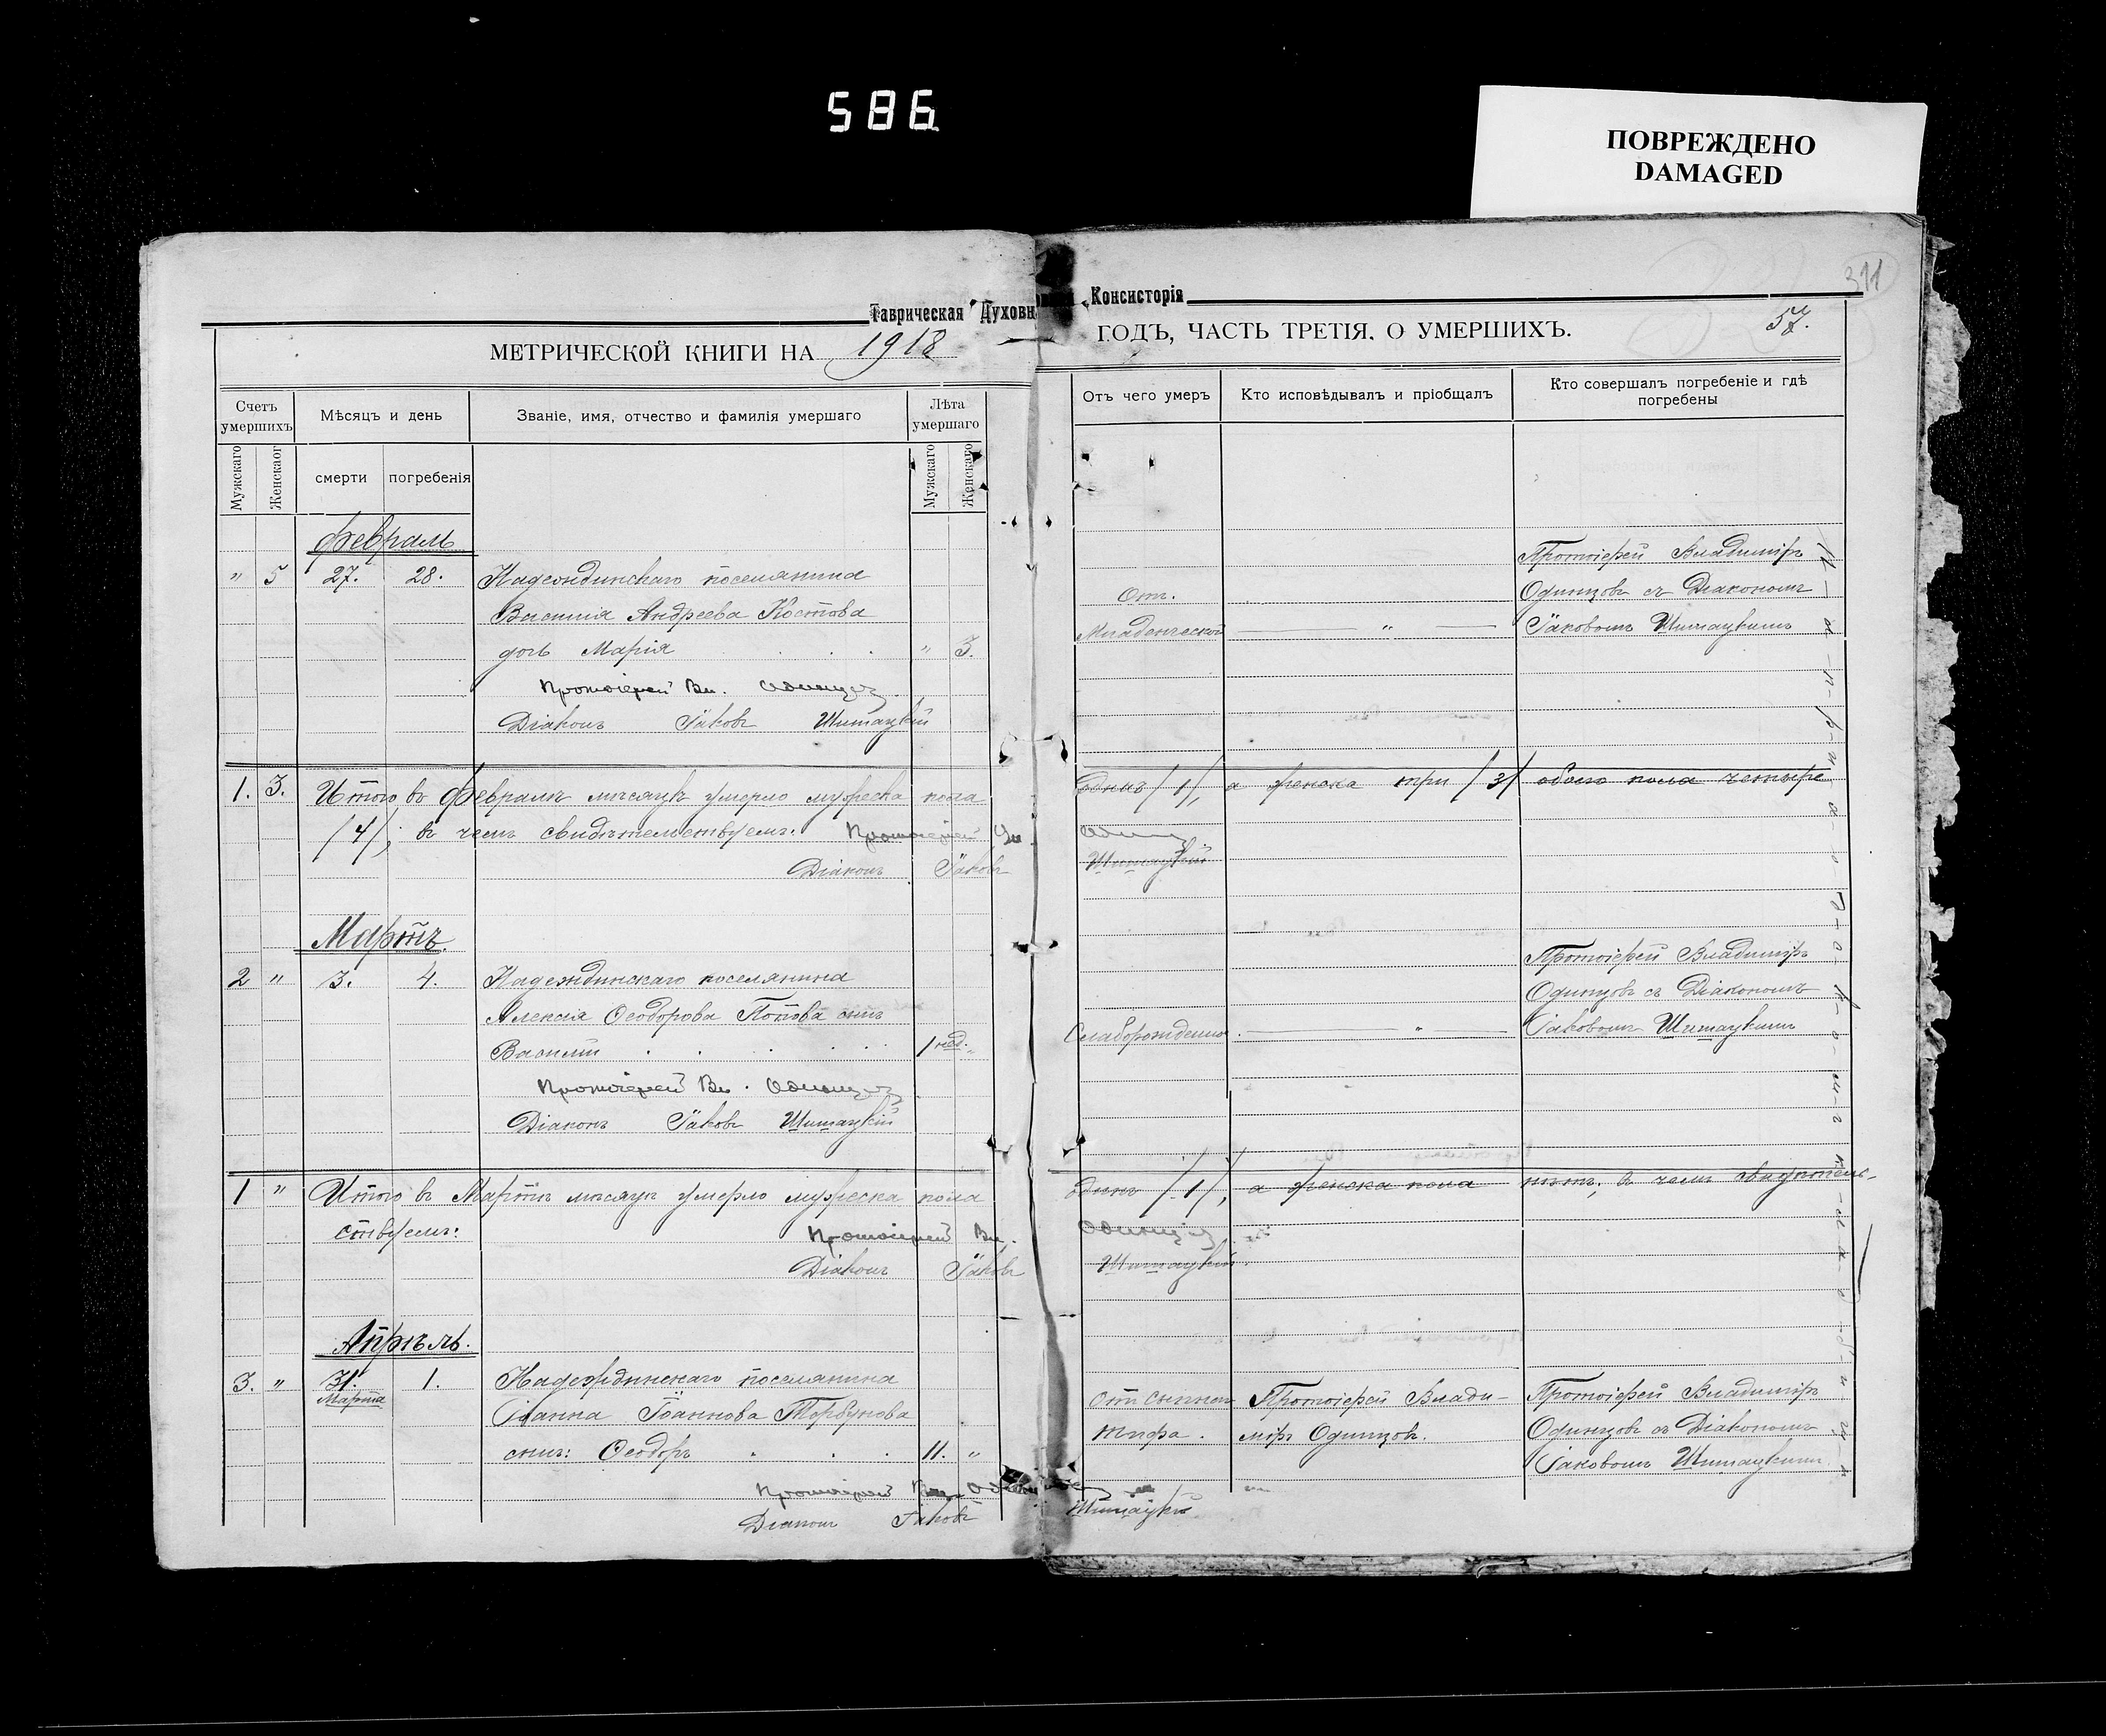 586
ПОВРЕЖДЕНО
DAMAGED
311
Таврическая Духовн Консисторія
57.
МЕТРИЧЕСКОЙ КНИГИ НА 1918 ГОДЪ, ЧАСТЬ ТРЕТІЯ, О УМЕРШИХЪ.
Счетъ умершихъ
Мужскаго
Женскаго
Мѣсяцъ и день
смерти
погребенія
Званіе, имя, отчество и фамилія умершаго
Лѣта умершаго
Мужскаго
Женскаго
Отъ чего умеръ
Кто исповѣдывалъ и пріобщалъ
Кто совершалъ погребеніе и гдѣ
погребены
Февраль
" 5 27. 28. Надеждинскаго поселянина
Василія Андреева Костова
дочь Марія " 3.
Отъ.
Младенческой "
Протоіерей Владиміръ
Одинцовъ съ Діакономъ
Іаковомъ Шитацкимъ
Протоіерей Вл. Одинцов
Діаконъ Іаковъ Шитацкій
1. 3. Итого въ Февралѣ мѣсяцѣ умерло мужеска пола Одинъ /1/, а женска три /3/ обоего пола четыре
/4/; въ чемъ свидѣтельствуемъ: Протоіерей Вл. Одинцов
Діаконъ Іаковъ Шитацкій
Мартъ.
2 " 3. 4. Надеждинскаго поселянина
Алексія Ѳеодорова Попова сынъ
Василій 1 нед. "
Слаборожденно "
Протоіерей Владиміръ
Одинцовъ съ Діакономъ
Іаковомъ Шитацкимъ
Протоіерей Вл. Одинцов
Діаконъ Іаковъ Шитацкій
1 " Итого въ Мартѣ мѣсяцѣ умерло мужеска пола одинъ /1/, а женска пола нѣтъ; въ чемъ свидѣтель-
ствуемъ: Протоіерей Вл. Одинцов
Діаконъ Іаковъ Шитацкій
Апрѣль.
3. " 31. Марта 1. Надеждинскаго поселянина
Іоанна Іоаннова Тербунова
сынъ: Ѳеодоръ 11. "
Отъ сыпнаго
тифа.
Протоіерей Влади-
міръ Одинцовъ.
Протоіерей Владиміръ
Одинцовъ съ Діакономъ
Іаковомъ Шитацкимъ
Протоіерей Вл. Одинцов
Діаконъ Іаковъ Шитацкій